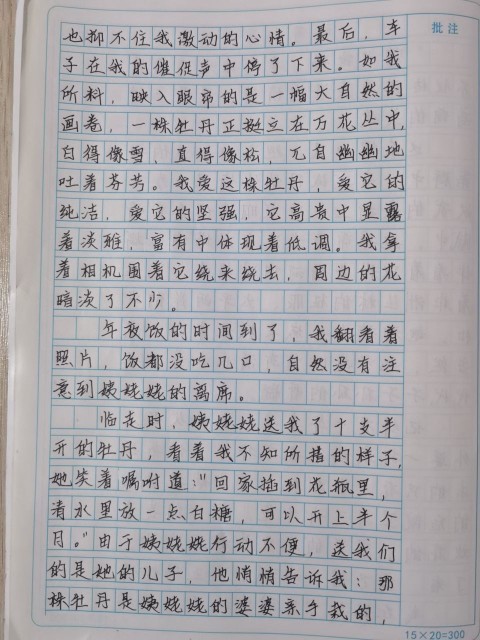 批注
也抑不住我激动的心情。最后，车
子在我的催促声中停了下来。如我
所料，映入眼帘的是一幅大自然的
画卷，一株牡丹正挺立在万花丛中，
白得像雪，直得像松，兀自幽幽地
吐着芬芳。我爱这株牡丹，爱它的
纯洁，爱它的坚强，它高贵中显露
着淡雅，富有中体现着低调。我拿
着相机围着它绕来绕去，周边的花
暗淡了不少。
年夜饭的时间到了，我翻看着
照片，饭都没吃几口，自然没有注
意到姨姥姥的离席。
临走时，姨姥姥送我了十支半
开的牡丹，看着我不知所措的样子，
她笑着嘱咐道："回家插到花瓶里，
清水里放一点白糖，可以开上半个
月。"由于姨姥姥行动不便，送我们
的是她的儿子，他悄悄告诉我：那
株牡丹是姨姥姥的婆婆亲手栽的，
15×20=300